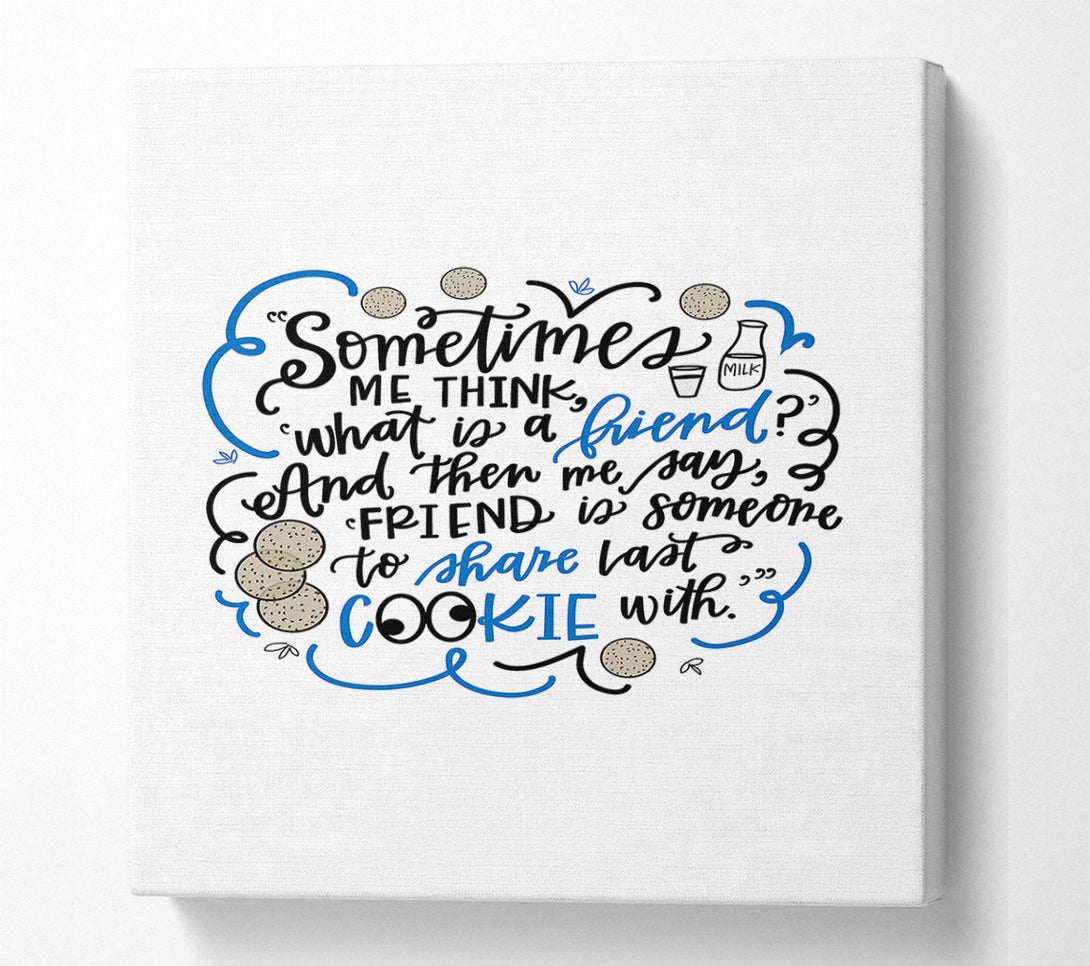 “Sometimes
MILK
ME THINK,
‘what is a friend?’
And then me say,
‘FRIEND is someone
to share last
COOKIE with.’”